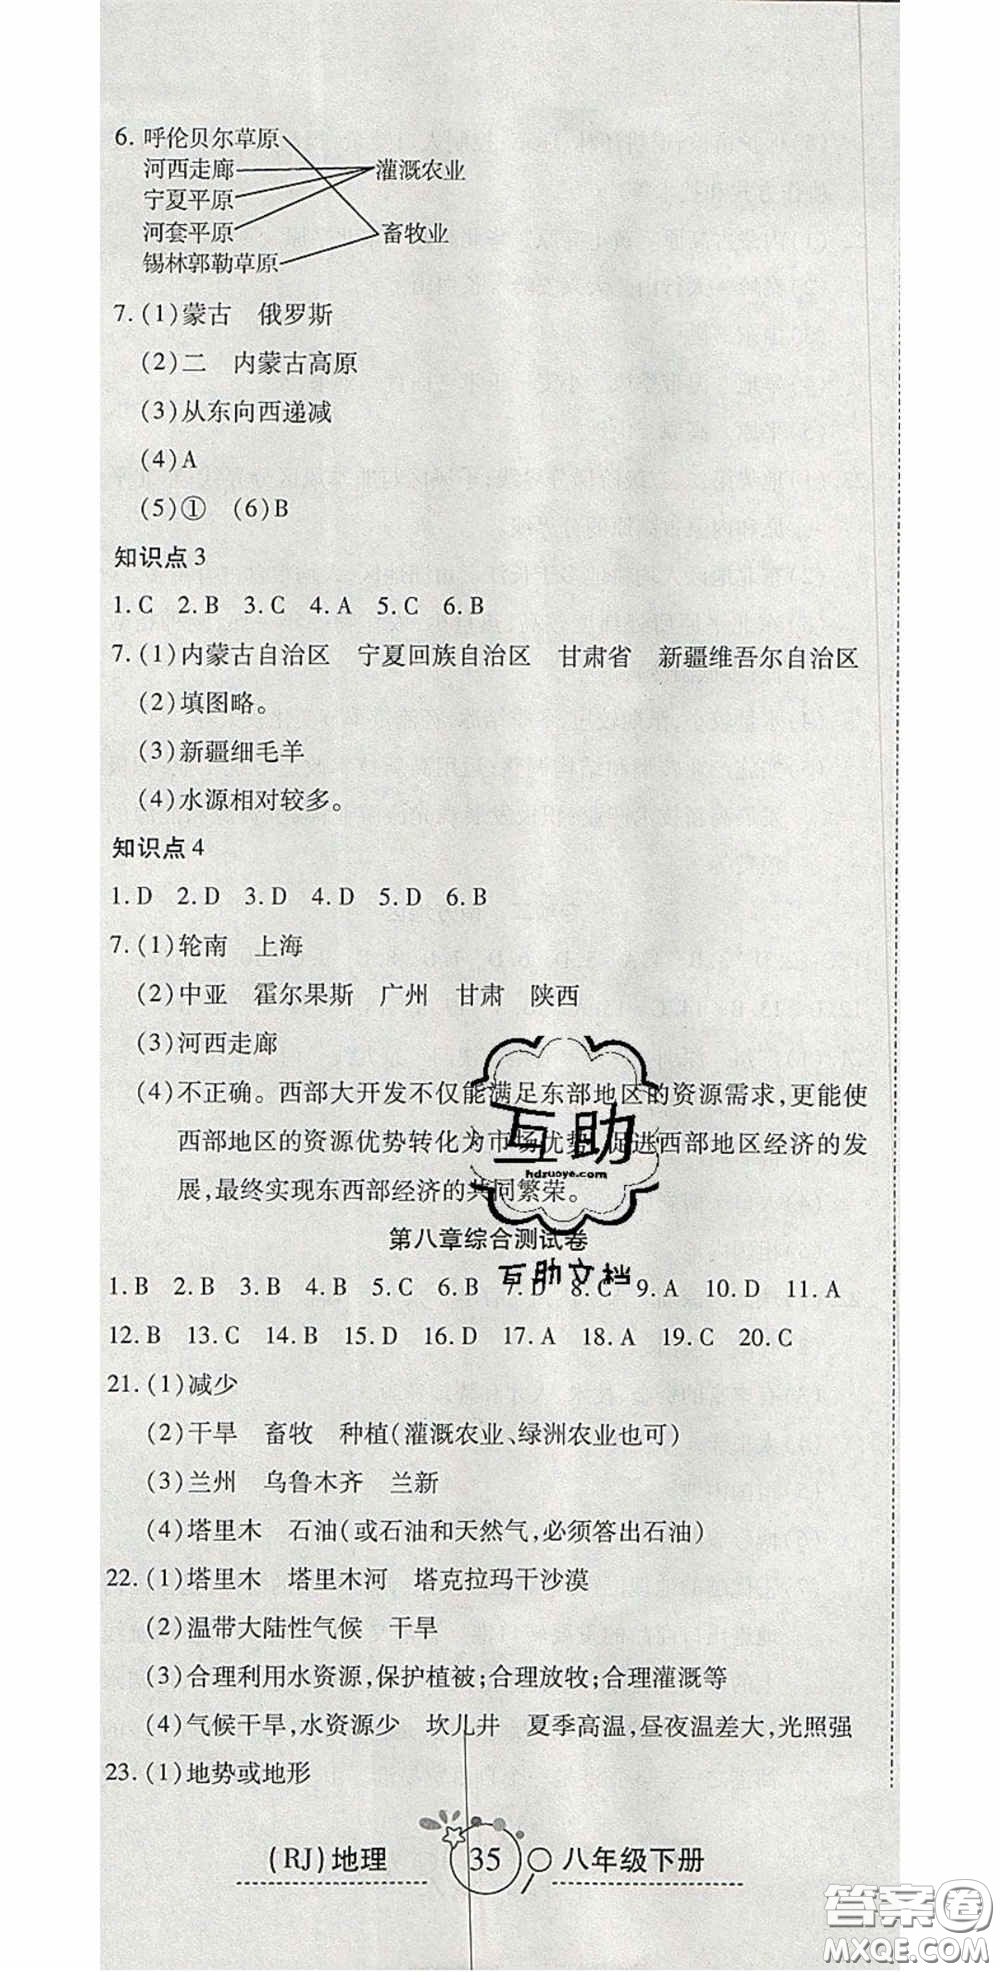 6. 呼伦贝尔草原
河西走廊 灌溉农业
宁夏平原
河套平原 畜牧业
锡林郭勒草原
7. (1)蒙古 俄罗斯
(2)二 内蒙古高原
(3)从东向西递减
(4)A
(5)① (6)B
知识点3
1. C 2. B 3. C 4. A 5. C 6. B
7. (1)内蒙古自治区 宁夏回族自治区 甘肃省 新疆维吾尔自治区
(2)填图略。
(3)新疆细毛羊
(4)水源相对较多。
知识点4
1. D 2. D 3. D 4. D 5. D 6. B
7. (1)轮南 上海
(2)中亚 霍尔果斯 广州 甘肃 陕西
(3)河西走廊
(4)不正确。西部大开发不仅能满足东部地区的资源需求,更能使
西部地区的资源优势转化为市场优势,促进西部地区经济的发
展,最终实现东西部经济的共同繁荣。
互助
hdzuoye.com
互助文档
第八章综合测试卷
1. B 2. B 3. B 4. B 5. C 6. B 7. D 8. C 9. A 10. D 11. A
12. B 13. C 14. B 15. D 16. D 17. A 18. A 19. C 20. C
21. (1)减少
(2)干旱 畜牧 种植(灌溉农业、绿洲农业也可)
(3)兰州 乌鲁木齐 兰新
(4)塔里木 石油(或石油和天然气,必须答出石油)
22. (1)塔里木 塔里木河 塔克拉玛干沙漠
(2)温带大陆性气候 干旱
(3)合理利用水资源,保护植被;合理放牧;合理灌溉等
(4)气候干旱,水资源少 坎儿井 夏季高温,昼夜温差大,光照强
23. (1)地势或地形
(RJ)地理 35 八年级下册
答案圈
MXQE.COM